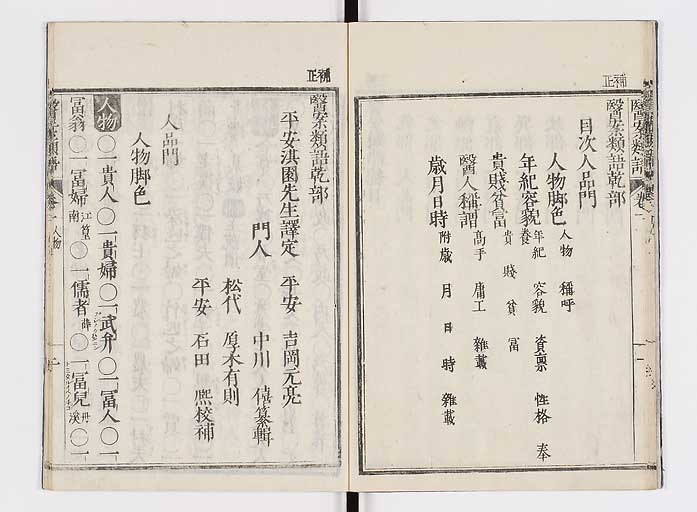 補正
醫案類語乾部
目次人品門
人物脚色 人物 稱呼
年紀容貌 年紀 容貌 資稟 性格 奉養
貴賤貧富 貴賤貧富
醫人稱謂 高手 庸工 雜載
歲月日時 附歲月日時雜載
醫案類語 卷一
補正
醫案類語乾部
平安淇園先生譯定 平安 吉岡元亮
門人 中川 僖纂輯
松代 原木有則
平安 石田 熈校補
人品門
人物脚色
人物 〇一貴人〇一貴婦〇一武弁〇一冨人〇一
冨翁〇一冨婦江篁南〇一儒者薛〇一冨兒丹溪〇一
醫案類語 卷一 人物 一